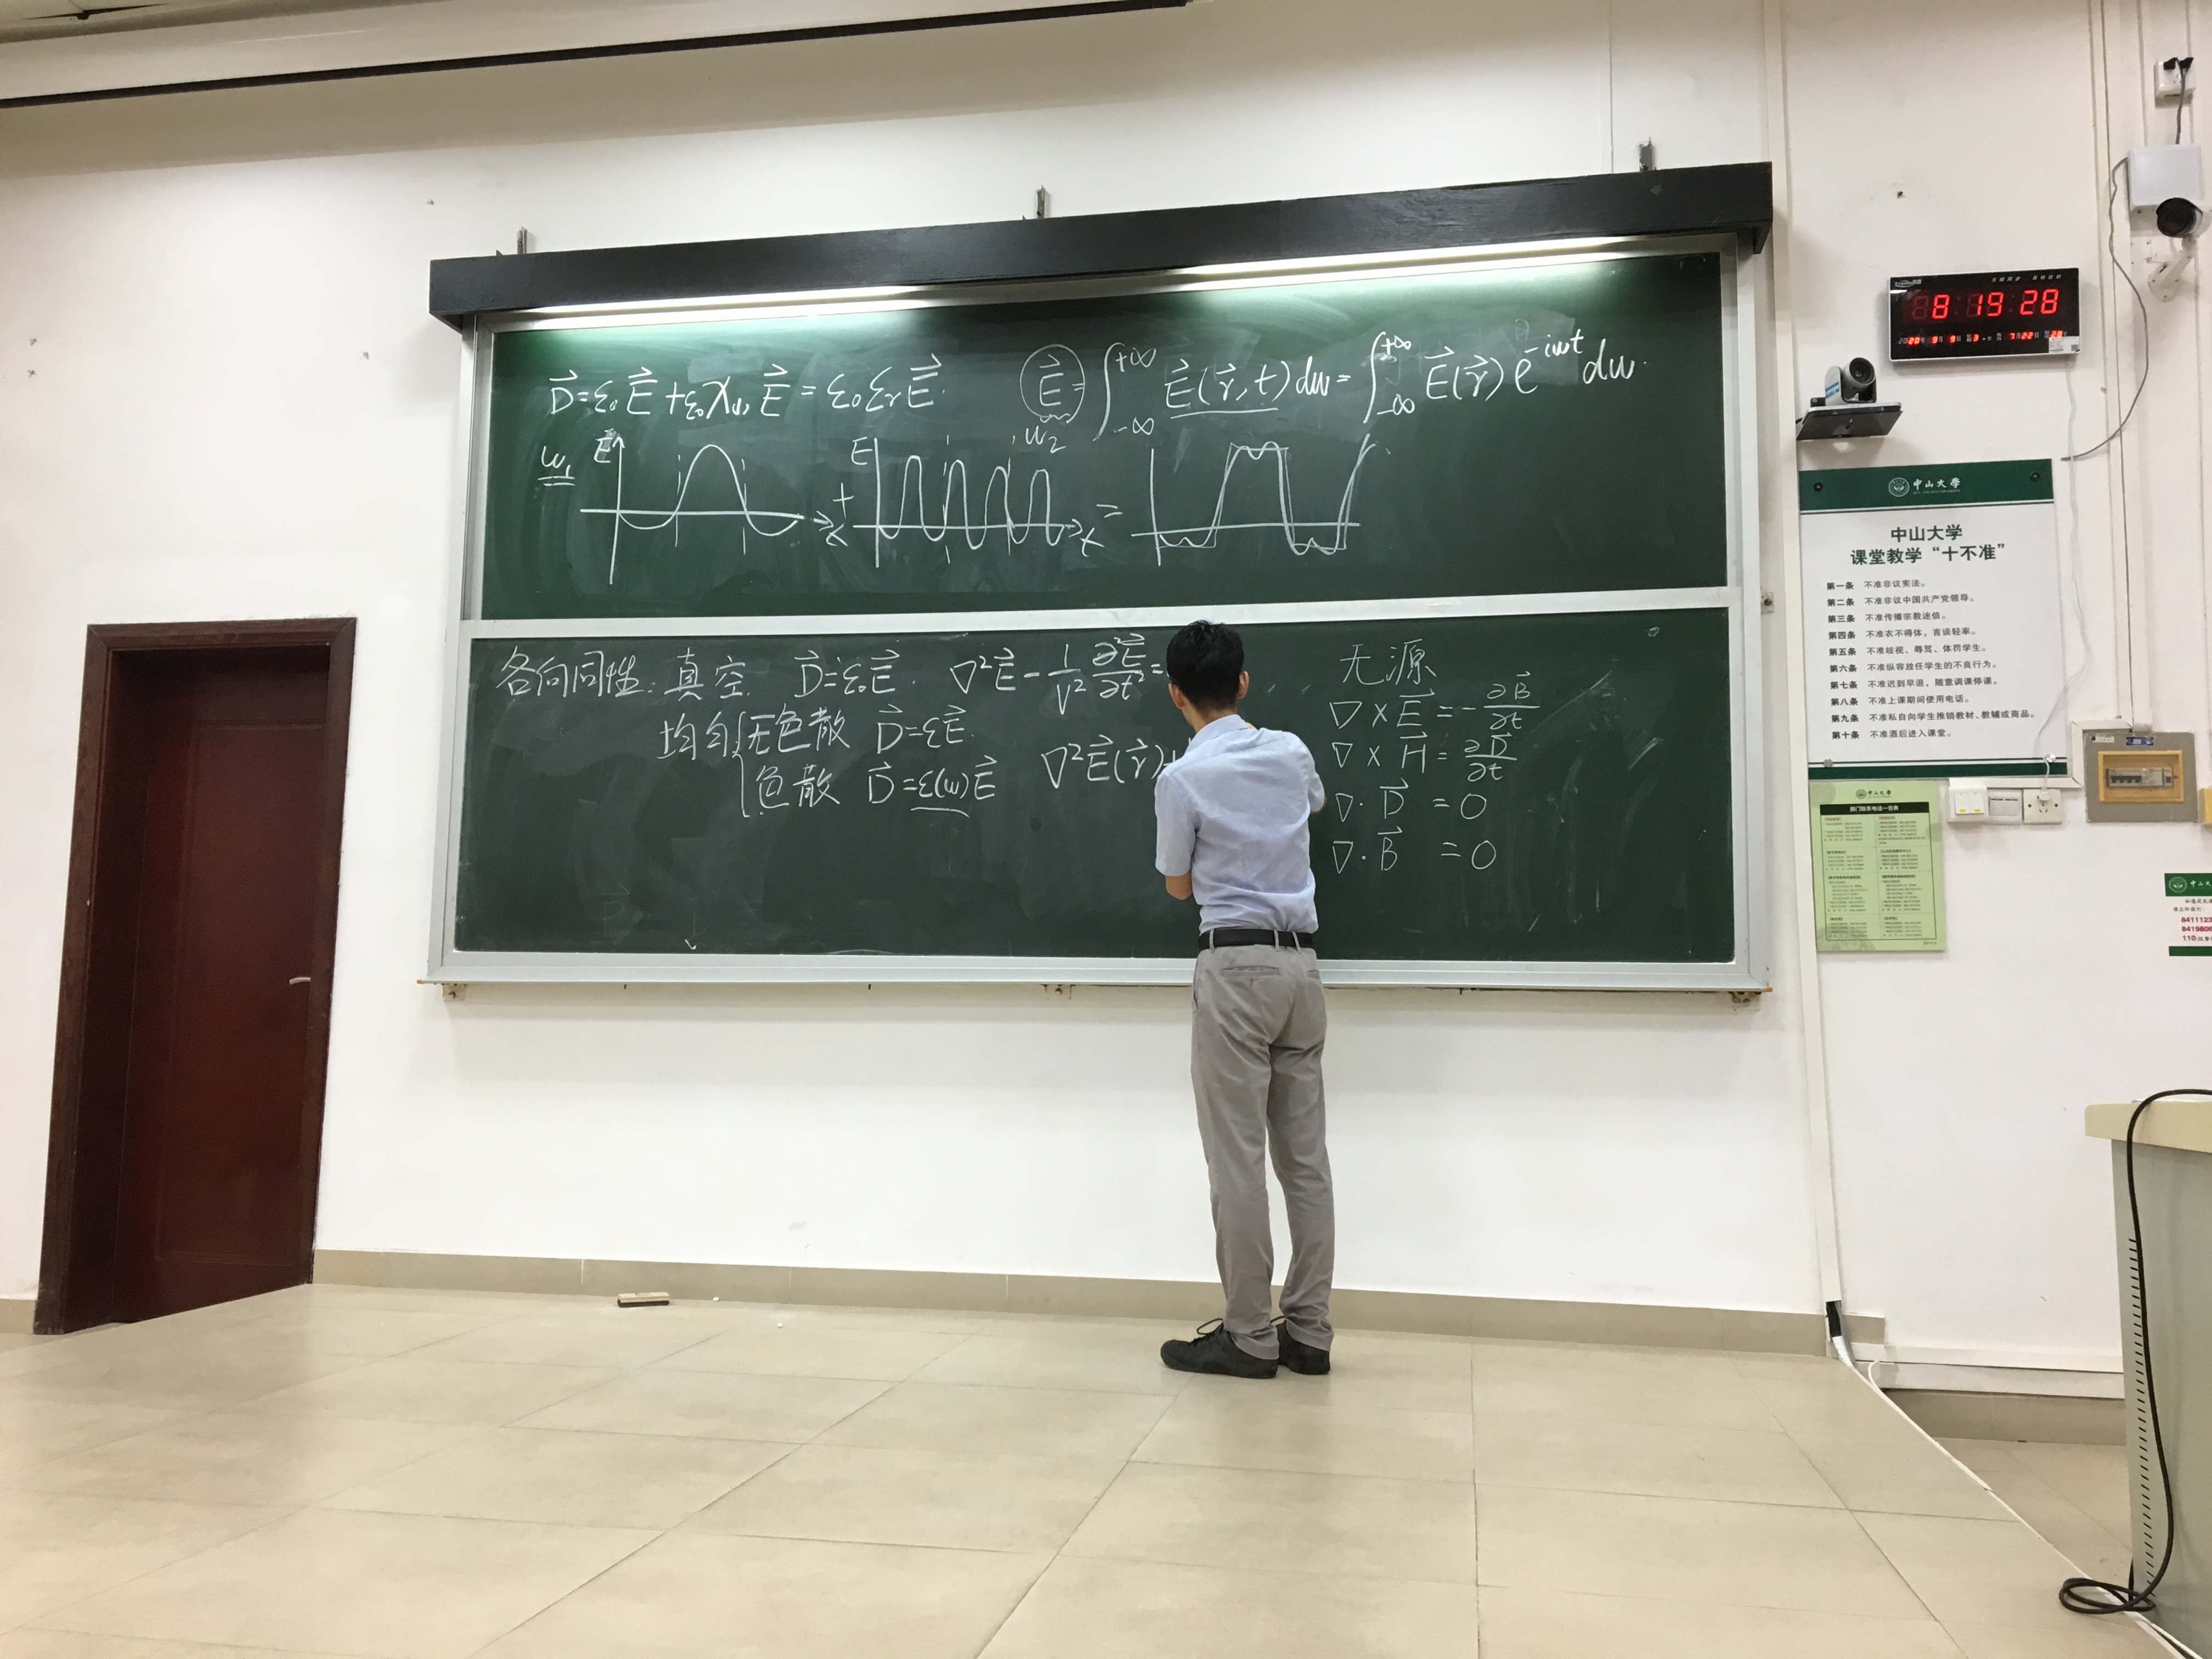 D⃗=ε₀E⃗+ε₀χ₍₁₎E⃗=ε₀εᵣE⃗.
E⃗=∫₋∞⁺∞ E⃗(r⃗,t)dω=∫₋∞⁺∞ E⃗(r⃗)e⁻ⁱωᵗdω.
ω₁ E
+
E ω₂ t
=
各向同性: 真空. D⃗=ε₀E⃗. ∇²E⃗-1/V² ∂²E⃗/∂t²=
均匀 无色散 D⃗=εE⃗.
色散 D⃗=ε(ω)E⃗ ∇²E⃗(r⃗)+
无源
∇×E⃗=-∂B⃗/∂t
∇×H⃗=∂D⃗/∂t
∇·D⃗=0
∇·B⃗=0
8 19 28
2020年 9月 9日 3 7月22日 28
中山大學
中山大学
课堂教学“十不准”
第一条 不准非议宪法。
第二条 不准非议中国共产党领导。
第三条 不准传播宗教迷信。
第四条 不准衣不得体，言谈轻率。
第五条 不准歧视、辱骂、体罚学生。
第六条 不准纵容放任学生的不良行为。
第七条 不准迟到早退，随意调课停课。
第八条 不准上课期间使用电话。
第九条 不准私自向学生推销教材、教辅或商品。
第十条 不准酒后进入课堂。
中山大學
部门联系电话一览表
中山大
8411123
8419806
110